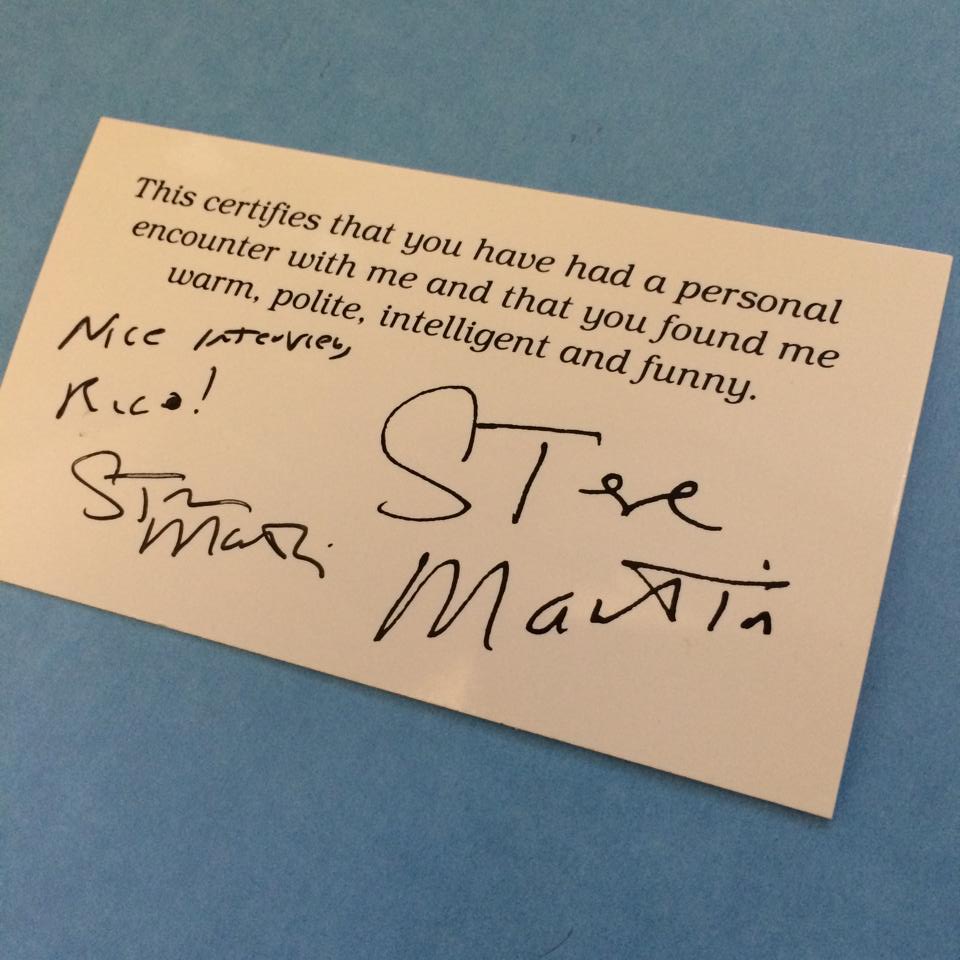 This certifies that you have had a personal
encounter with me and that you found me
warm, polite, intelligent and funny.
Nice interview,
Rico!
Steve
Martin
Steve
Martin